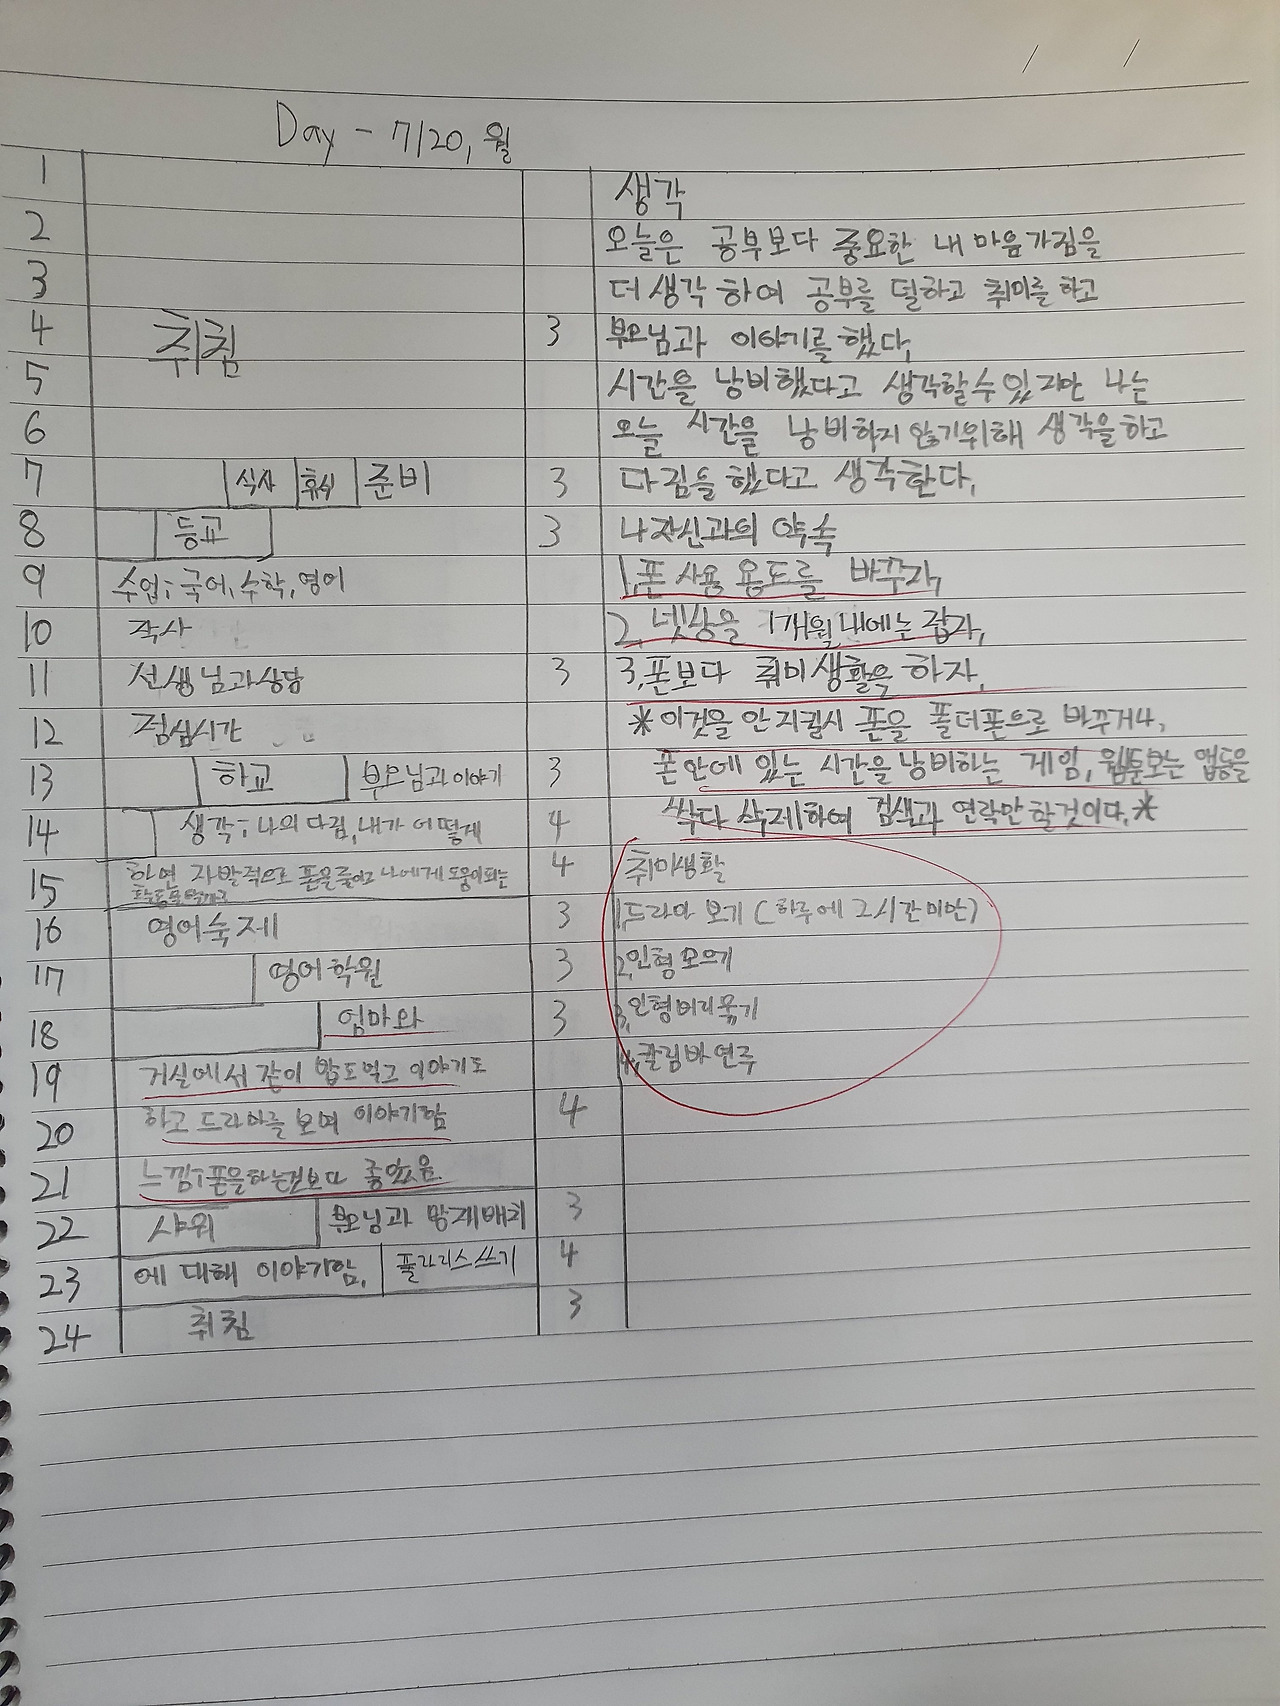 Day - 7/20, 월
1
2
3
4 취침 3
5
6
7 식사 휴식 준비 3
8 등교 3
9 수업; 국어, 수학, 영어
10 작사
11 선생님과 상담 3
12 점심시간
13 하교 부모님과 이야기 3
14 생각; 나의 다짐, 내가 어떻게 4
15 하면 자발적으로 폰을 줄이고 나에게 도움이되는 4
16 영어숙제 3
17 영어학원 3
18 엄마와 3
19 거실에서 같이 밥도먹고 이야기도
20 하고 드라마를 보며 이야기함 4
21 느낌; 폰을하는것보다 좋았음.
22 샤워 부모님과 방재배치 3
23 에 대해 이야기함, 플래너쓰기 4
24 취침 3
생각
오늘은 공부보다 중요한 내 마음가짐을
더 생각 하여 공부를 덜하고 취미를 하고
부모님과 이야기를 했다,
시간을 낭비했다고 생각할수 있지만 나는
오늘 시간을 낭비하지 않기위해 생각을 하고
다짐을 했다고 생각한다,
나 자신과의 약속
1, 폰 사용 용도를 바꾸자,
2, 넷상을 1개월 내에는 접자,
3, 폰보다 취미생활을 하자,
* 이것을 안 지킬시 폰을 폴더폰으로 바꾸거나,
폰 안에 있는 시간을 낭비하는 게임, 웹툰보는 앱등을
싹다 삭제하여 검색과 연락만 할것이다, *
취미생활
1, 드라마 보기 (하루에 2시간 미만)
2, 인형 모으기
3, 인형머리묶기
4, 칼림바 연주